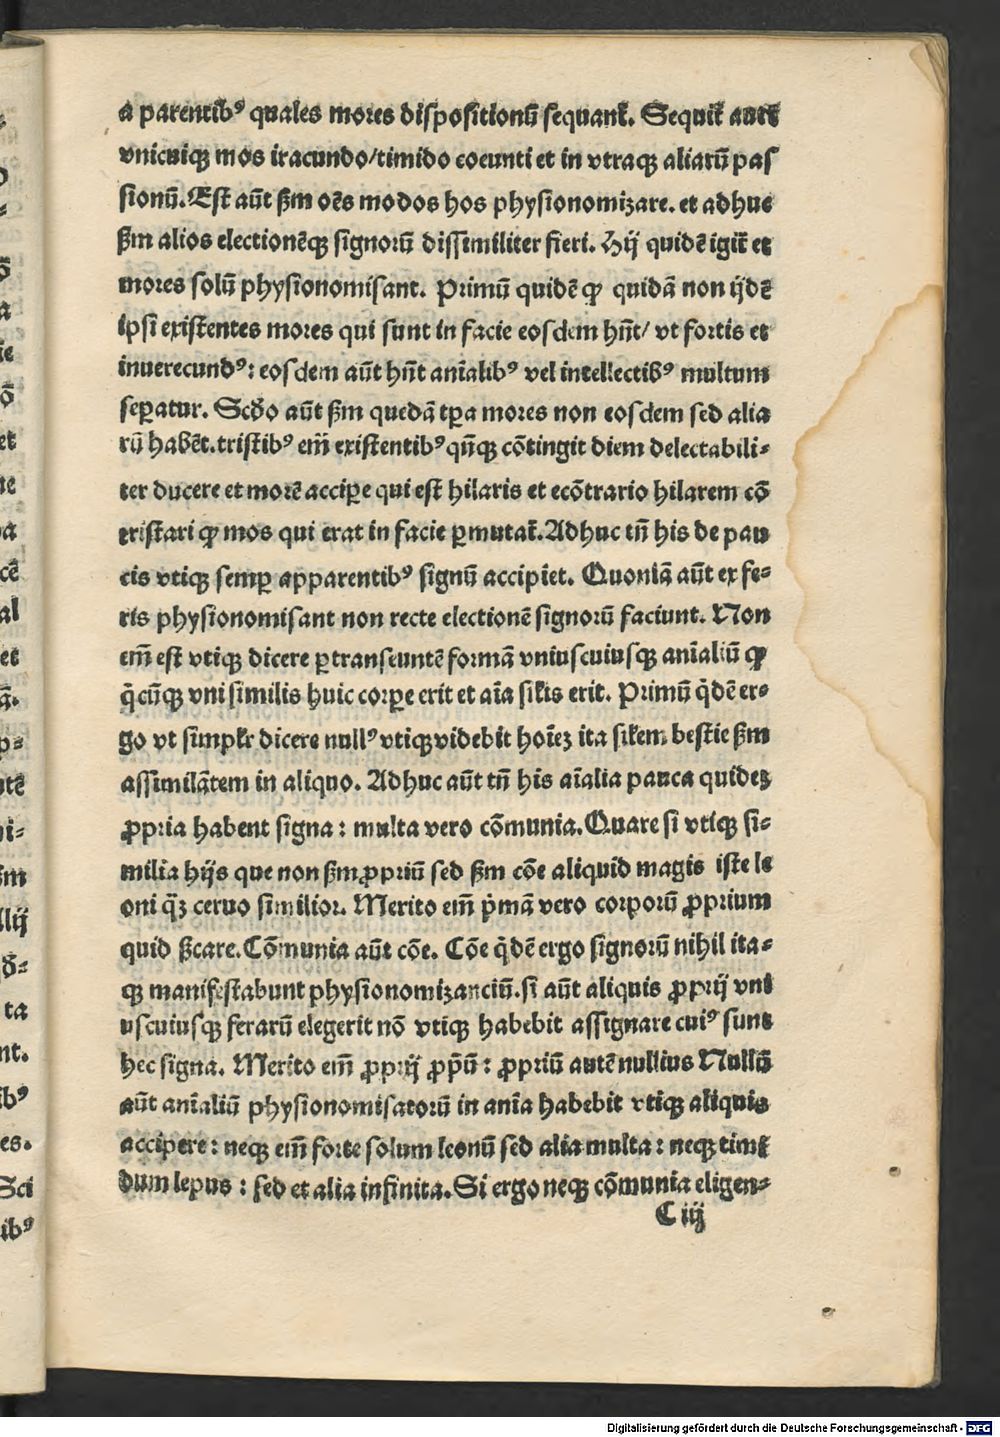 a parentibꝰ quales mores dispositionū sequant̄. Sequit̄ autē
vnicuiqꝫ mos iracundo/timido coeunti et in vtraqꝫ aliarū pas
sionū. Est aūt ßm oēs modos hos physionomizare. et adhuc
ßm alios electionēqꝫ signorū dissimiliter fieri. Hij quidē igit̄ et
mores solū physionomisant. Primū quidē ꝙ quidā non ijdē
ipsi existentes mores qui sunt in facie eosdem hn̄t/ vt fortis et
inuerecundꝰ: eosdem aūt hn̄t aīalibꝰ vel intellectibꝰ multum
seꝑatur. Scd̄o aūt ßm quedā tꝑa mores non eosdem sed alia
rū habēt. tristibꝰ em̄ existentibꝰ qn̄qꝫ cōtingit diem delectabili-
ter ducere et morē acciꝑe qui est hilaris et ecōtrario hilarem cō
tristari ꝙ mos qui erat in facie ꝑmutat̄. Adhuc tn̄ his de pau
cis vtiqꝫ semꝑ apparentibꝰ signū accipiet. Quoniā aūt ex fe-
ris physionomisant non recte electionē signorū faciunt. Non
em̄ est vtiqꝫ dicere ꝑtranseuntē formā vniuscuiusqꝫ anīaliū ꝙ
q̄cūqꝫ vni similis huic corꝑe erit et aīa sil̄is erit. Primū q̄dē er-
go vt simpl̄r dicere nullꝰ vtiqꝫ videbit hoīeꝫ ita sil̄em bestie ßm
assimilātem in aliquo. Adhuc aūt tn̄ his aīalia pauca quideꝫ
ꝓpria habent signa: multa vero cōmunia. Quare si vtiqꝫ si-
milia hijs que non ßm ꝓpriū sed ßm cōe aliquid magis iste le
oni q̄ꝫ ceruo similior. Merito em̄ p̄mā vero corporū ꝓprium
quid ßcare. Cōmunia aūt cōe. Cōe q̄dē ergo signorū nihil ita-
qꝫ manifestabunt physionomizanciū. si aūt aliquis ꝓprij vni
uscuiusqꝫ ferarū elegerit nō vtiqꝫ habebit assignare cuiꝰ sunt
hec signa. Merito em̄ ꝓprij ꝓpū: ꝓpriū autē nullius Nullū
aūt anīaliū physionomisatorū in anīa habebit vtiqꝫ aliquis
accipere: neqꝫ em̄ forte solum leonū sed alia multa: neqꝫ timi
dum lepus: sed et alia infinita. Si ergo neqꝫ cōmunia eligen-
C iij
Digitalisierung gefördert durch die Deutsche Forschungsgemeinschaft - DFG